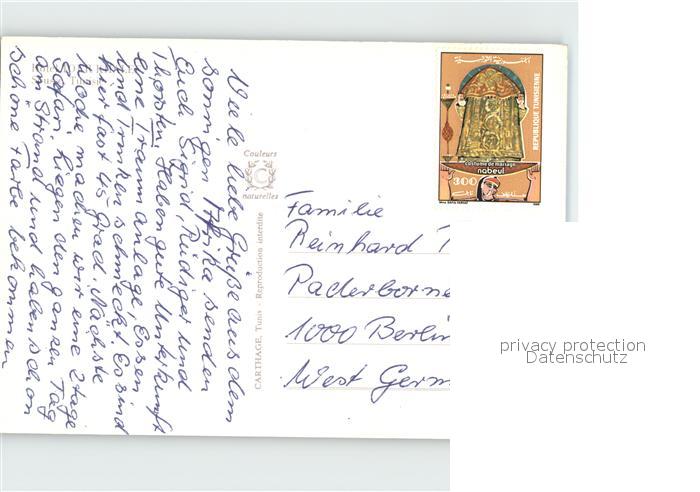 Viele liebe Grüße aus dem
sonnigen Afrika senden
Euch Sigrid, Rüdiger und
Thorsten. Haben gute Unterkunft
eine Traumanlage, Essen
und Trinken schmeckt. Es sind
hier fast 45 Grad. Nächste
Woche machen wir eine 2 tage
Safari. Liegen den ganzen Tag
am Strand und haben schon
schöne Farbe bekommen
Couleurs
C
naturelles
CARTHAGE, Tunis - Reproduction interdite
Familie
Reinhard T
Paderborne
1000 Berlin
West Germ
REPUBLIQUE TUNISIENNE
costume de mariage
nabeul
300
privacy protection
Datenschutz